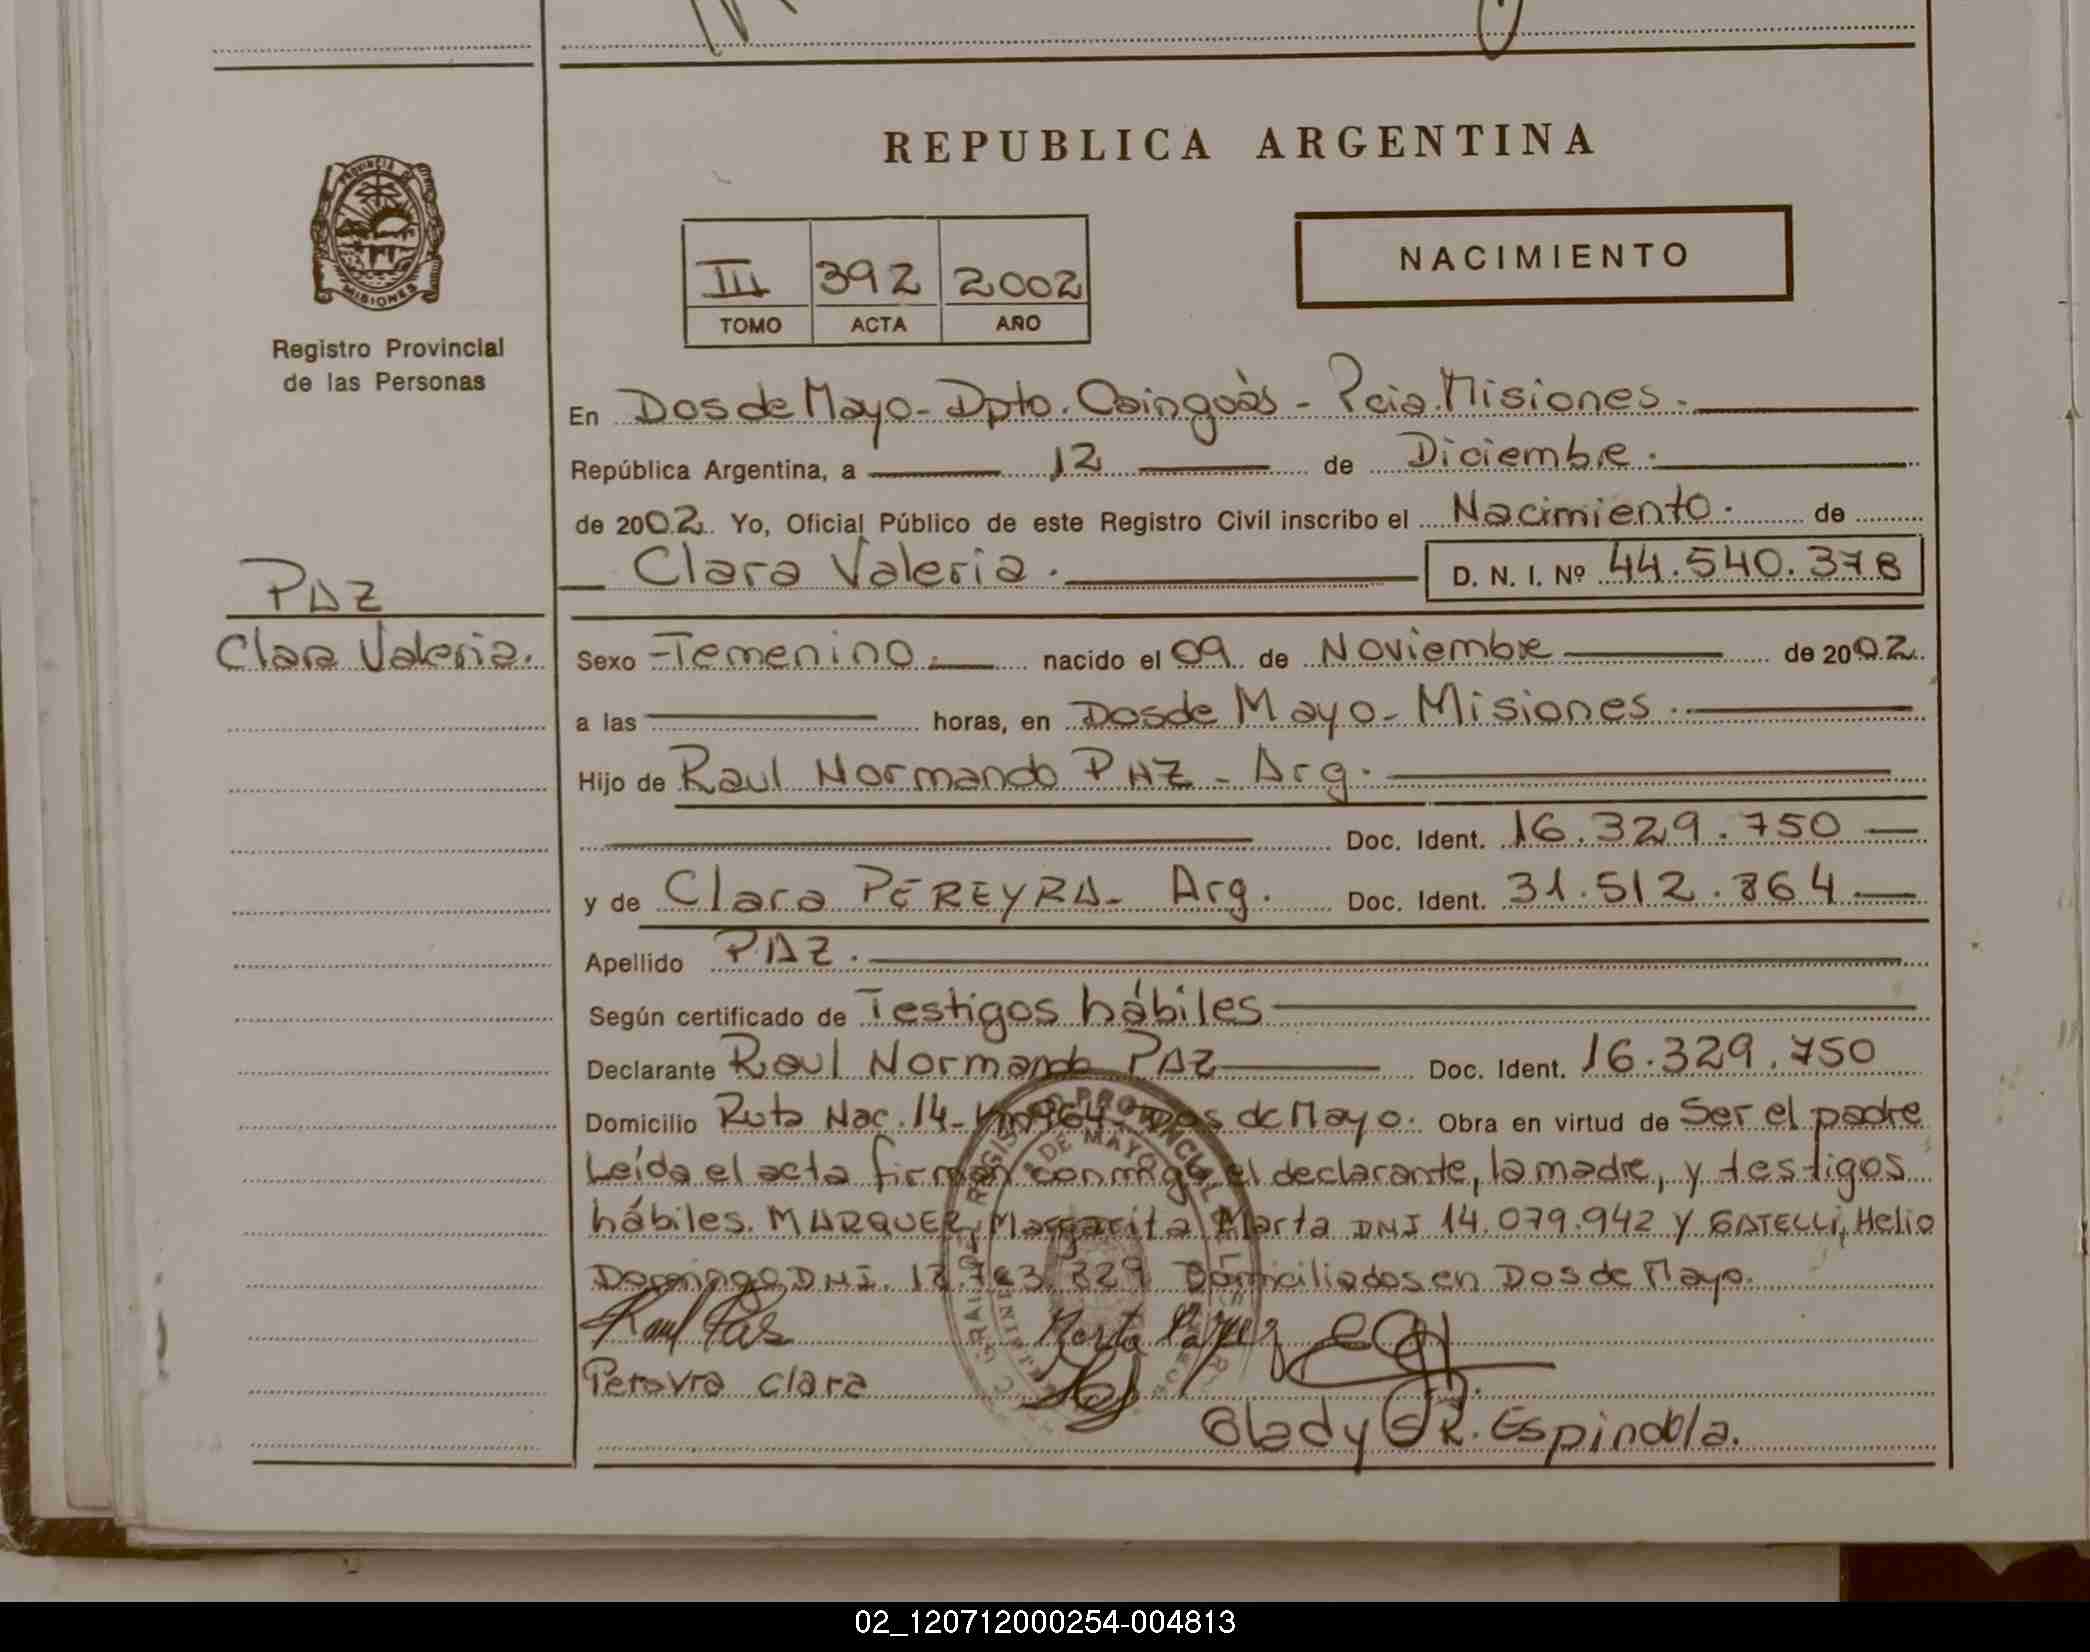 REPUBLICA ARGENTINA
PROVINCIA DE
MISIONES
Registro Provincial
de las Personas
III 392 2002
TOMO ACTA AÑO
NACIMIENTO
En Dos de Mayo - Dpto. Cainguàs - Pcia. Misiones.
República Argentina, a 12 de Diciembre.
de 2002. Yo, Oficial Público de este Registro Civil inscribo el Nacimiento. de
Clara Valeria. D. N. I. Nº 44.540.378
PAZ
Clara Valeria.
Sexo Femenino. nacido el 09 de Noviembre de 2002.
a las horas, en Dos de Mayo - Misiones.
Hijo de Raul Normando PAZ - Arg.
Doc. Ident. 16.329.750
y de Clara PEREYRA - Arg. Doc. Ident. 31.512.864
Apellido PAZ.
Según certificado de Testigos hábiles
Declarante Raul Normando PAZ Doc. Ident. 16.329.750
Domicilio Ruta Nac. 14 - Km 964 - Dos de Mayo. Obra en virtud de Ser el padre
Leída el acta firman conmigo el declarante, la madre, y testigos
hábiles. MARQUEZ, Margarita Marta DNI 14.079.942 y GATELLI, Helio
Domingo DNI. Domiciliados en Dos de Mayo.
Raul Paz
Pereyra Clara
Gladys R. Espindola.
02_120712000254-004813